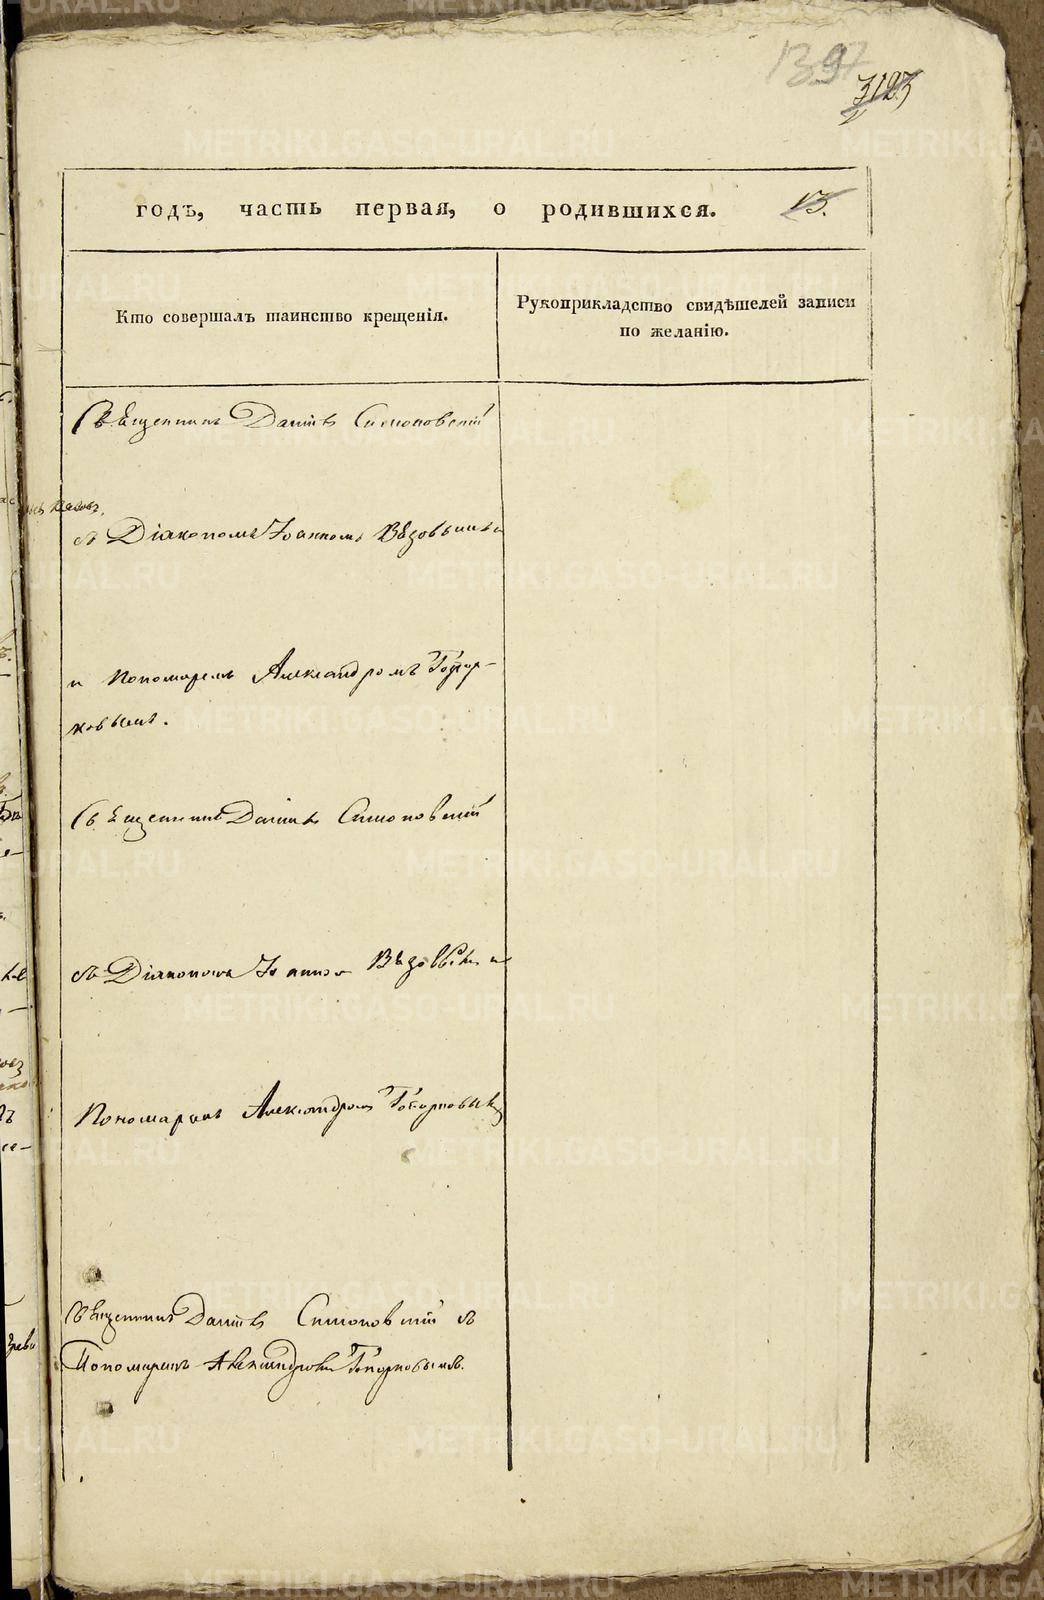 1397
3123
годъ, часть первая, о родившихся. 13.
Кто совершалъ таинство крещенія.
Рукоприкладство свидѣтелей записи
по желанію.
Священникъ Даніилъ Симоновскій
съ Діакономъ Іоанномъ Вѣдовымъ
и Пономаремъ Александромъ
ковымъ.
Священникъ Даніилъ Симоновскій
съ Діакономъ Іоанномъ
Пономаремъ Александромъ
Священникъ Даніилъ Симоновскій съ
Пономаремъ Александромъ
METRIKI.GASO-URAL.RU